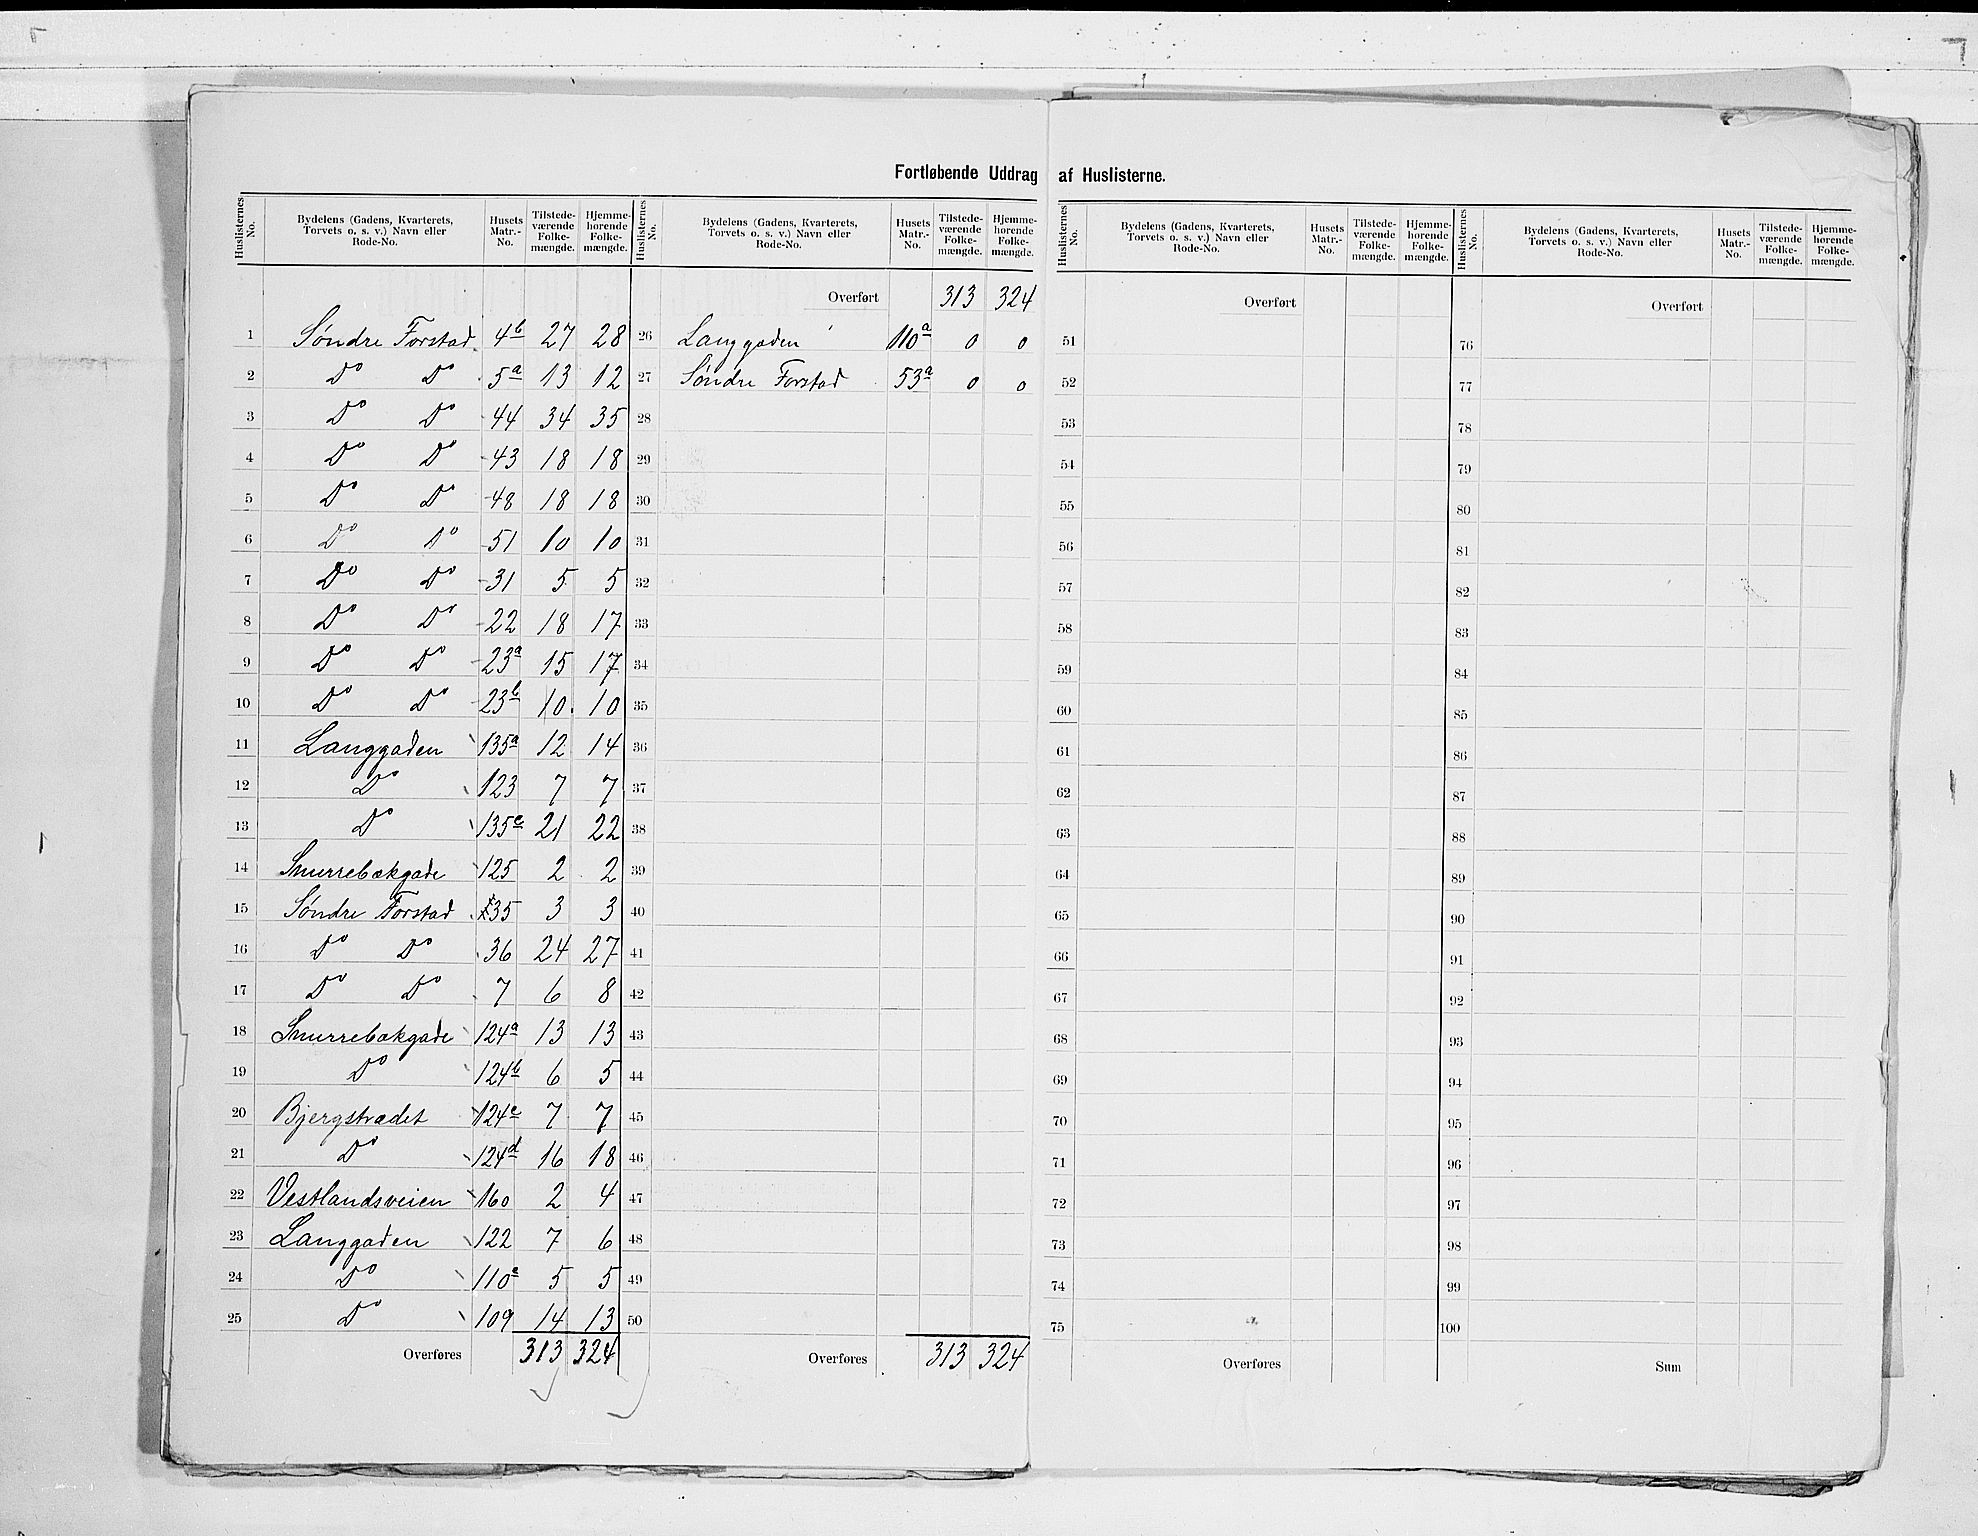 Fortløbende Uddrag af Huslisterne.
Huslisternes No. Bydelens (Gadens, Kvarterets, Torvets o. s. v.) Navn eller Rode-No. Husets Matr.-No. Tilstedeværende Folkemængde. Hjemmehørende Folkemængde.
1 Søndre Forstad 4b 27 28
2 Do Do 5a 13 12
3 Do Do 44 34 35
4 Do Do 43 18 18
5 Do Do 48 18 18
6 Do Do 51 10 10
7 Do Do 31 5 5
8 Do Do 22 18 17
9 Do Do 23a 15 17
10 Do Do 23b 10 10
11 Langgaden 135a 12 14
12 Do 123 7 7
13 Do 135c 21 22
14 Snurrebækgade 125 2 2
15 Søndre Forstad 35 3 3
16 Do Do 36 24 27
17 Do Do 7 6 8
18 Snurrebækgade 124a 13 13
19 Do 124b 6 5
20 Bjergstrædet 124c 7 7
21 Do 124d 16 18
22 Vestlandsveien 160 2 4
23 Langgaden 122 7 6
24 Do 110e 5 5
25 Do 109 14 13
Overføres 313 324
Huslisternes No. Bydelens (Gadens, Kvarterets, Torvets o. s. v.) Navn eller Rode-No. Husets Matr.-No. Tilstedeværende Folkemængde. Hjemmehørende Folkemængde.
Overført 313 324
26 Langgaden 110a 0 0
27 Søndre Forstad 53a 0 0
28
29
30
31
32
33
34
35
36
37
38
39
40
41
42
43
44
45
46
47
48
49
50
Overføres 313 324
Huslisternes No. Bydelens (Gadens, Kvarterets, Torvets o. s. v.) Navn eller Rode-No. Husets Matr.-No. Tilstedeværende Folkemængde. Hjemmehørende Folkemængde.
Overført
51
52
53
54
55
56
57
58
59
60
61
62
63
64
65
66
67
68
69
70
71
72
73
74
75
Overføres
Huslisternes No. Bydelens (Gadens, Kvarterets, Torvets o. s. v.) Navn eller Rode-No. Husets Matr.-No. Tilstedeværende Folkemængde. Hjemmehørende Folkemængde.
Overført
76
77
78
79
80
81
82
83
84
85
86
87
88
89
90
91
92
93
94
95
96
97
98
99
100
Sum